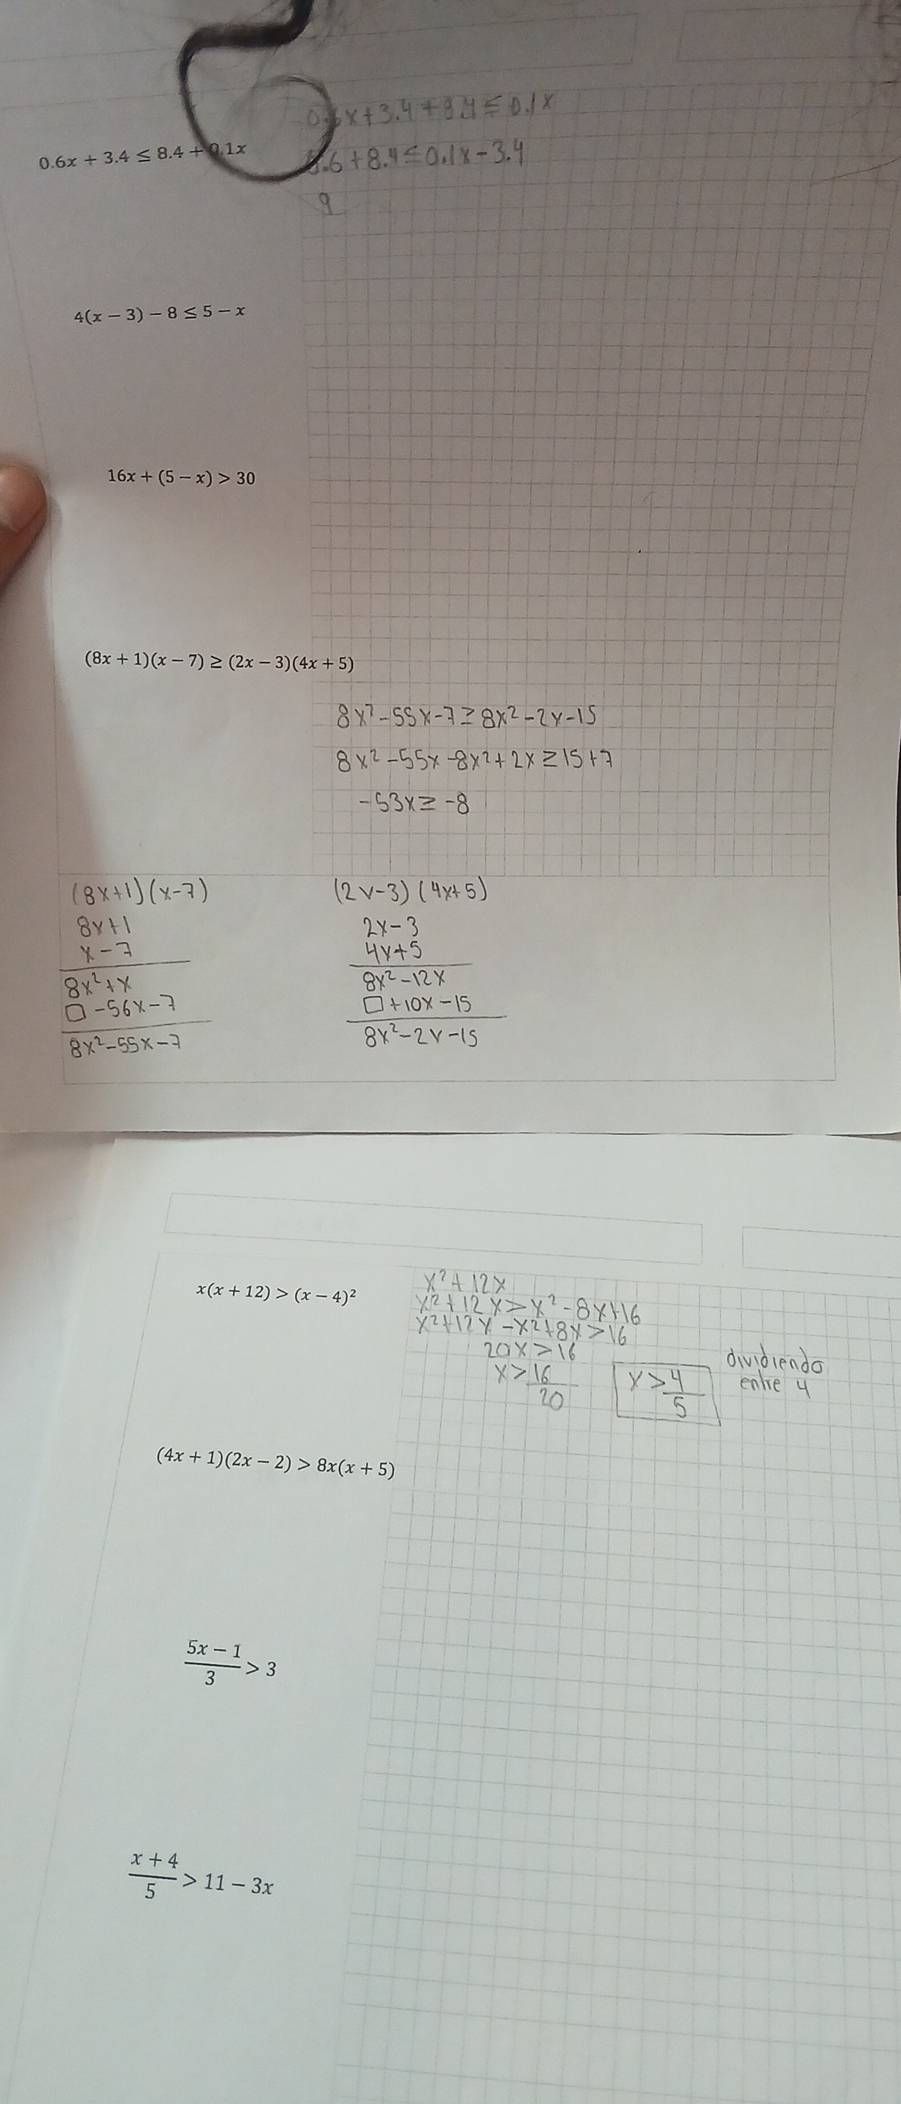 0.6x + 3.4 ≤ 8.4 + 0.1x
x+3.4+8.4≤0.1x
.6+8.4≤0.1x-3.4
9
4(x − 3) − 8 ≤ 5 − x
16x + (5 − x) > 30
(8x + 1)(x − 7) ≥ (2x − 3)(4x + 5)
8x²-55x-7≥8x²-2x-15
8x²-55x-8x²+2x≥15+7
-53x≥-8
(8x+1)(x-7)
8x+1
x-7
8x²+x
□-56x-7
8x²-55x-7
(2x-3)(4x+5)
2x-3
4x+5
8x²-12x
□+10x-15
8x²-2x-15
x(x + 12) > (x − 4)²
x²+12x
x²+12x>x²-8x+16
x²+12x-x²+8x>16
20x>16
x>16/20
x>4/5
dividiendo
entre 4
(4x + 1)(2x − 2) > 8x(x + 5)
(5x − 1)/3 > 3
(x + 4)/5 > 11 − 3x